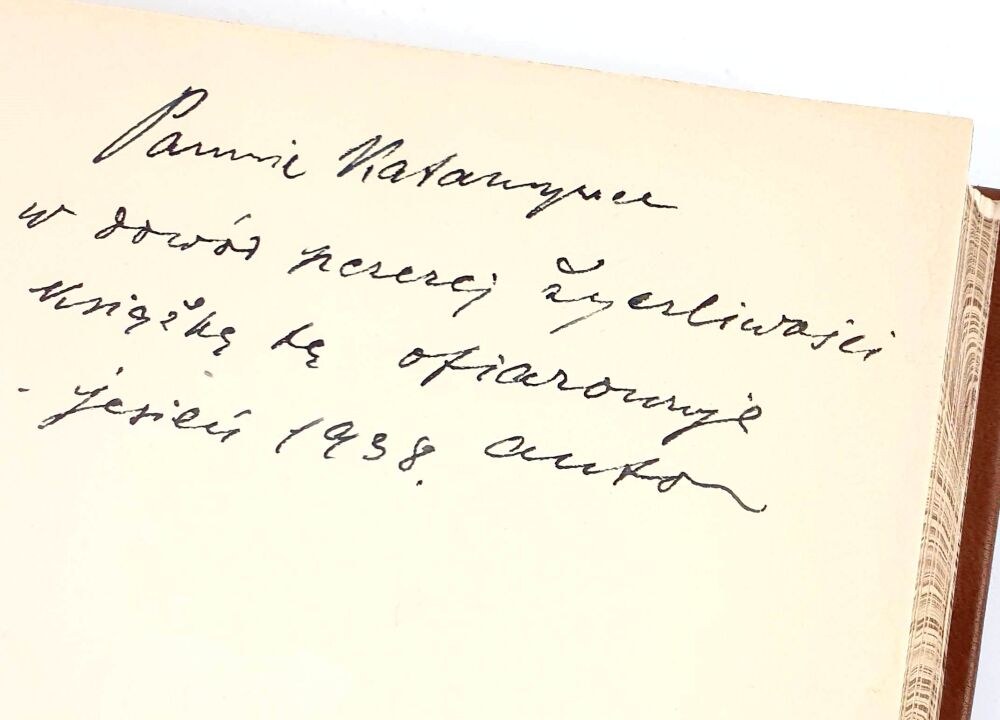 Pannie Katarzynce
w dowód szczerej życzliwości
książkę tę ofiarowuje
jesień 1938. autor